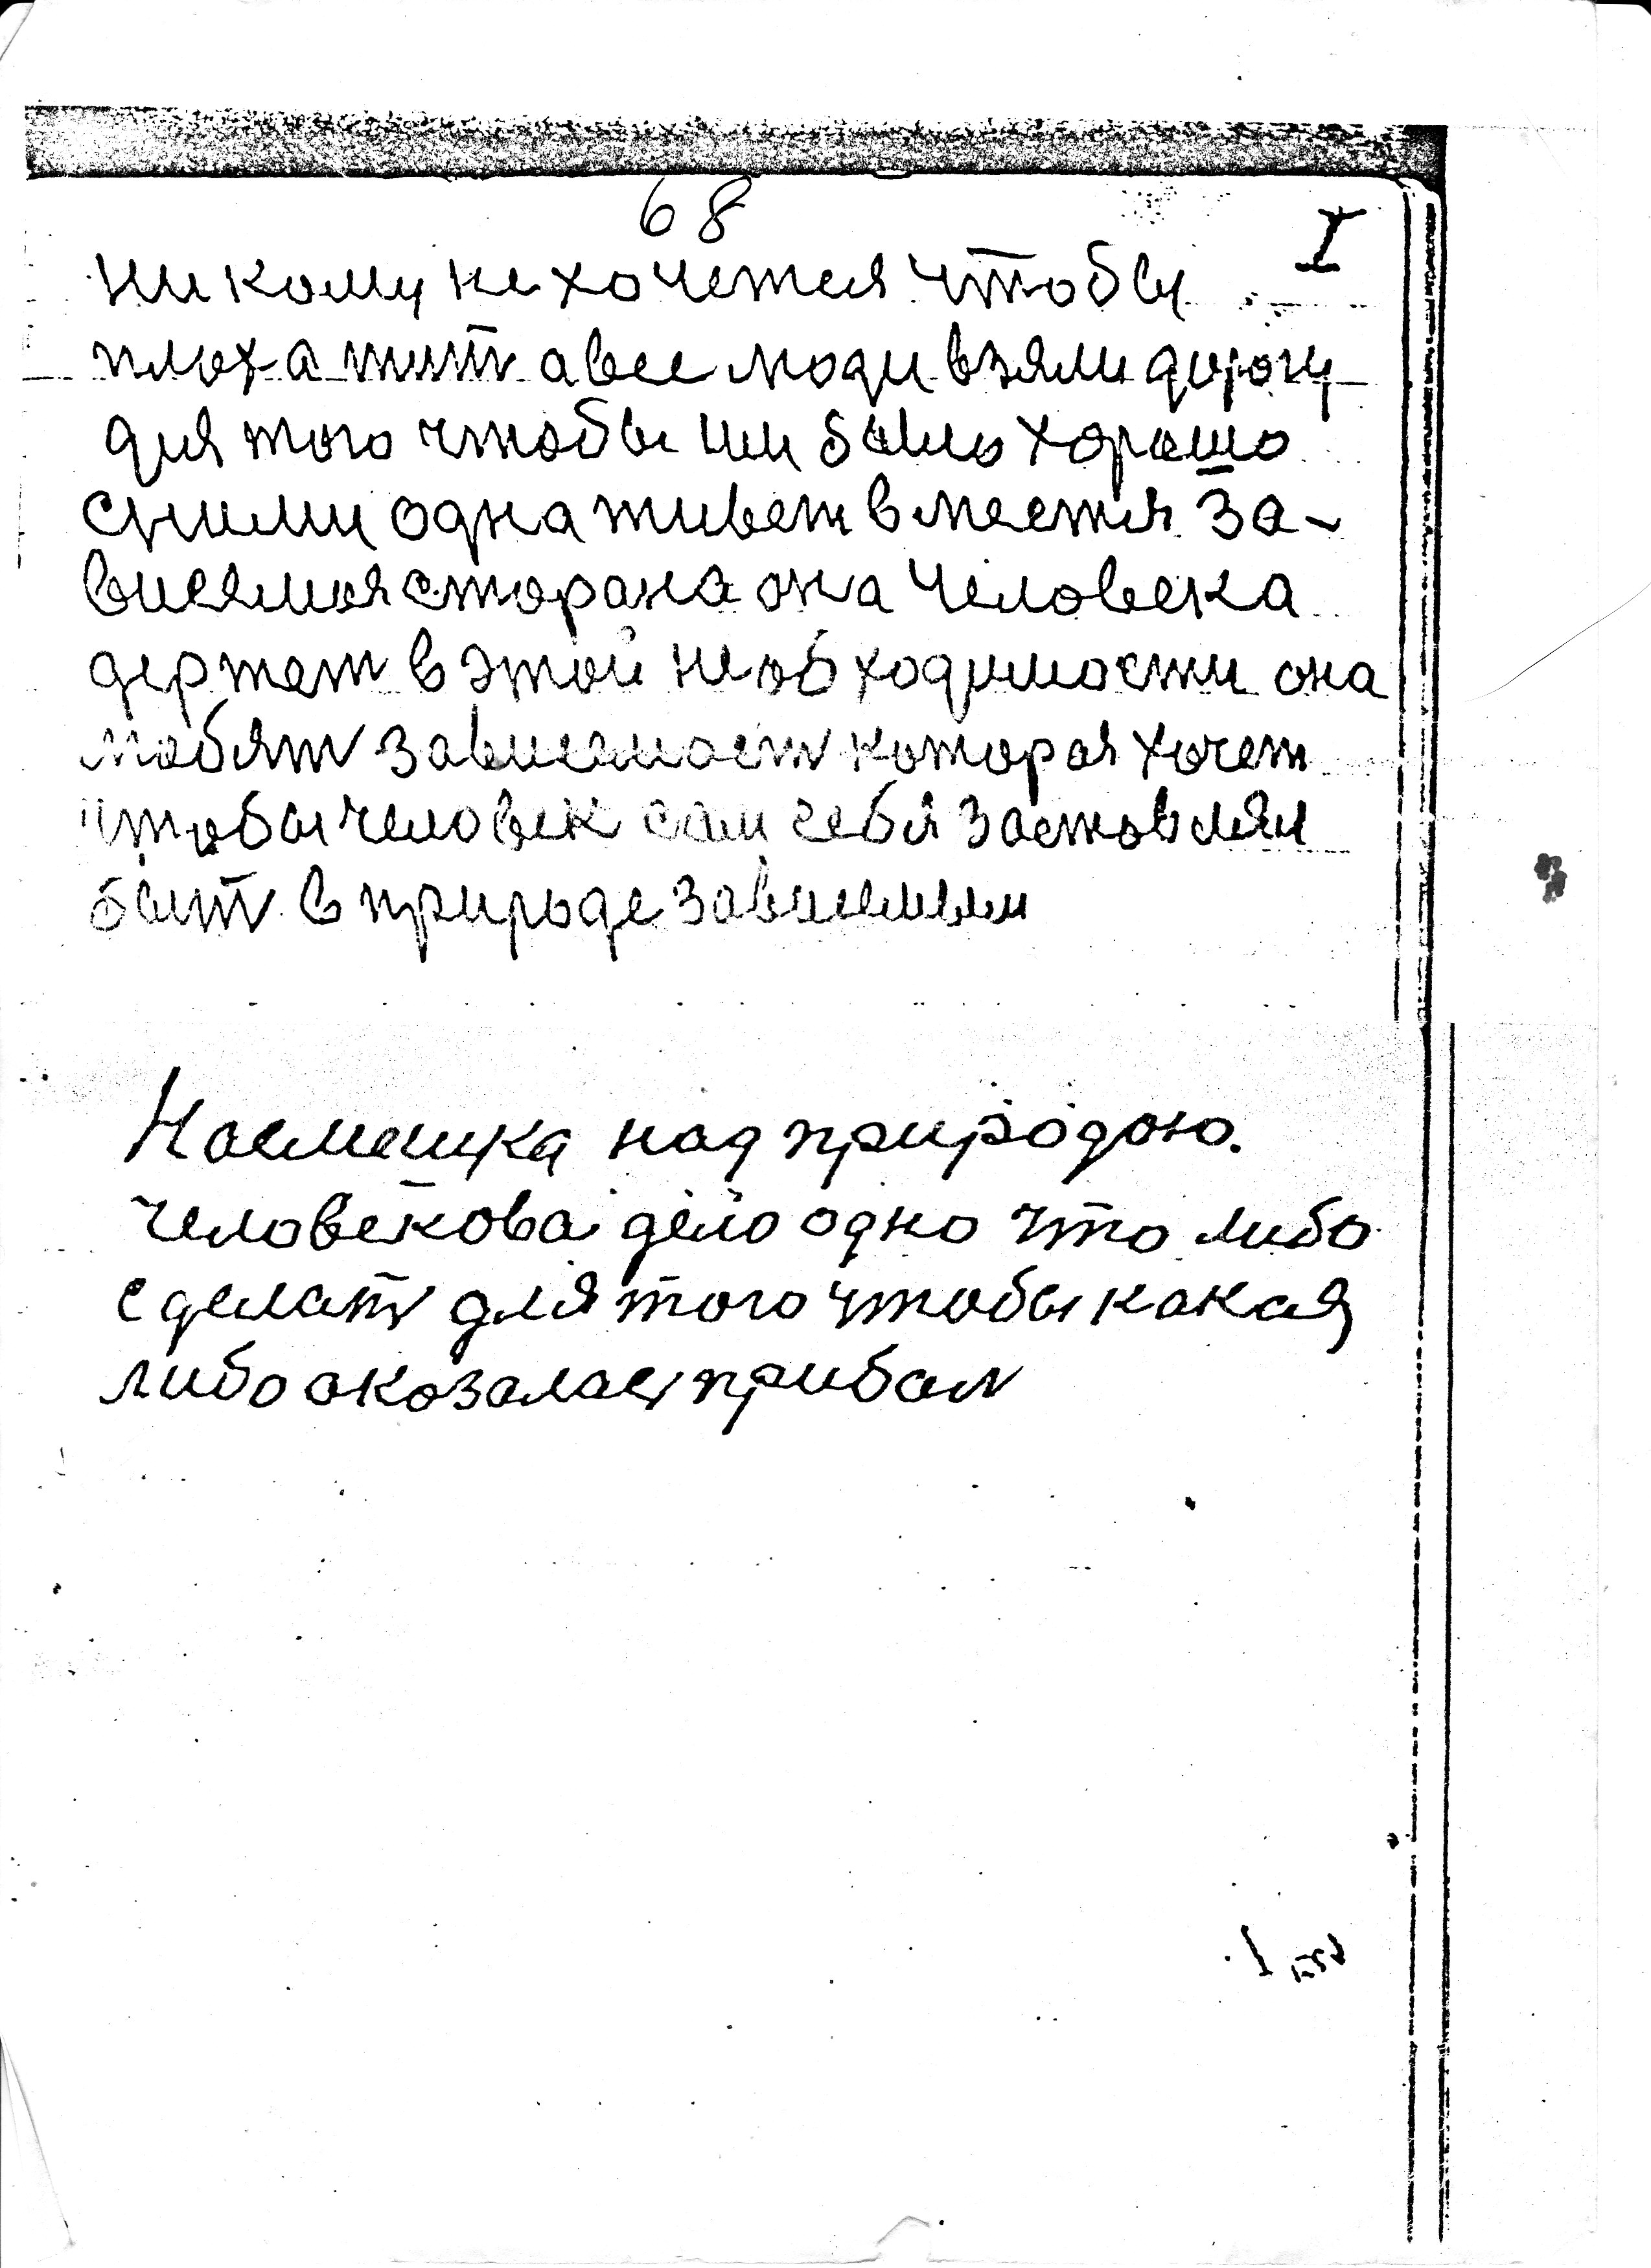 68
I
ни кому не хочется чтобы
плоха жит а все люди взяли дорогу
для того чтобы им было хорошо
сними одна живет вместя за-
висемая сторана она человека
держет в этой необходимости она
любят зависемост которая хочет
чтобы человек сам себя застовлял
быт в природе зависемым
Насмешка над природою.
Человекова дело одно что либо
сделат для того чтобы какая
либо оказалас прибал